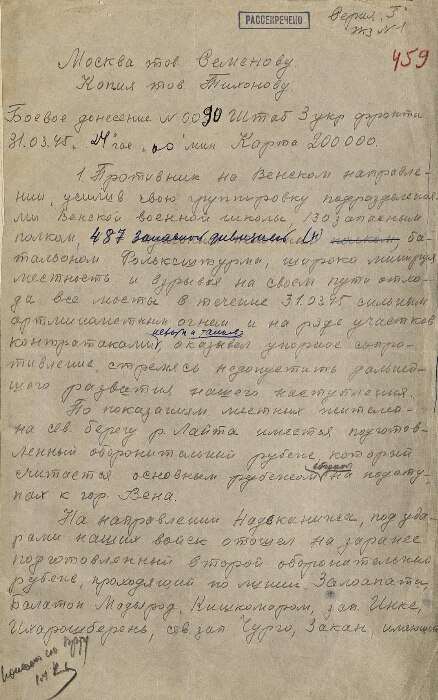 РАССЕКРЕЧЕНО
459
Москва тов Семенову.
Копия тов Тихонову.
Боевое донесение N 0090 Штаб 3 укр фронта
31.03.45. 24 час „00" мин Карта 200 000.
1. Противник на Венском направле-
нии, усилив свою группировку подразделения-
ми Венской военной школы, 130 запасным
полком, 487 запасной дивизией батальоном Фольксштурма, широко минируя
местность и взрывая на своем пути отхо-
да все мосты в течение 31.03.45 сильным
артминометным огнем и на ряде участков
контратаками, оказывал упорное сопро-
тивление, стремясь недопустить дальней-
шего развития нашего наступления.
По показаниям местных жителей
на сев. берегу р. Лайта имеется подготов-
ленный оборонительный рубеж, который
считается основным рубежом на подсту-
пах к гор. Вена.
На направлении Надьканижа, под уда-
рами наших войск отошел на заранее
подготовленный второй оборонительный
рубеж, проходящий по линии Залоапати,
Балатон Мадьярод, Кишкомаром, зап. Инке,
Ихарошберень, сев. зап Чурго, Закан, имеющий